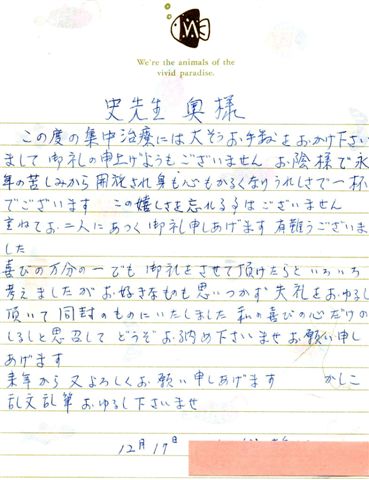 We're the animals of the
vivid paradise.
史先生 奥様
この度の集中治療には大そうお手数をおかけ下さい
まして御礼の申上げようもございません お陰様で永
年の苦しみから開放され身も心もかるくなりうれしさで一杯
でございます この嬉しさを忘れる事はございません
重ねてお二人にあつく御礼申しあげます 有難うございま
した
喜びの万分の一でも御礼をさせて頂けたらといろいろ
考えましたがお好きなものも思いつかず失礼をおゆるし
頂いて同封のものにいたしました 私の喜びの心だけの
しるしと思召して どうぞお納め下さいませ お願い申し
あげます
来年から又よろしくお願い申しあげます かしこ
乱文乱筆おゆるし下さいませ
12月17日